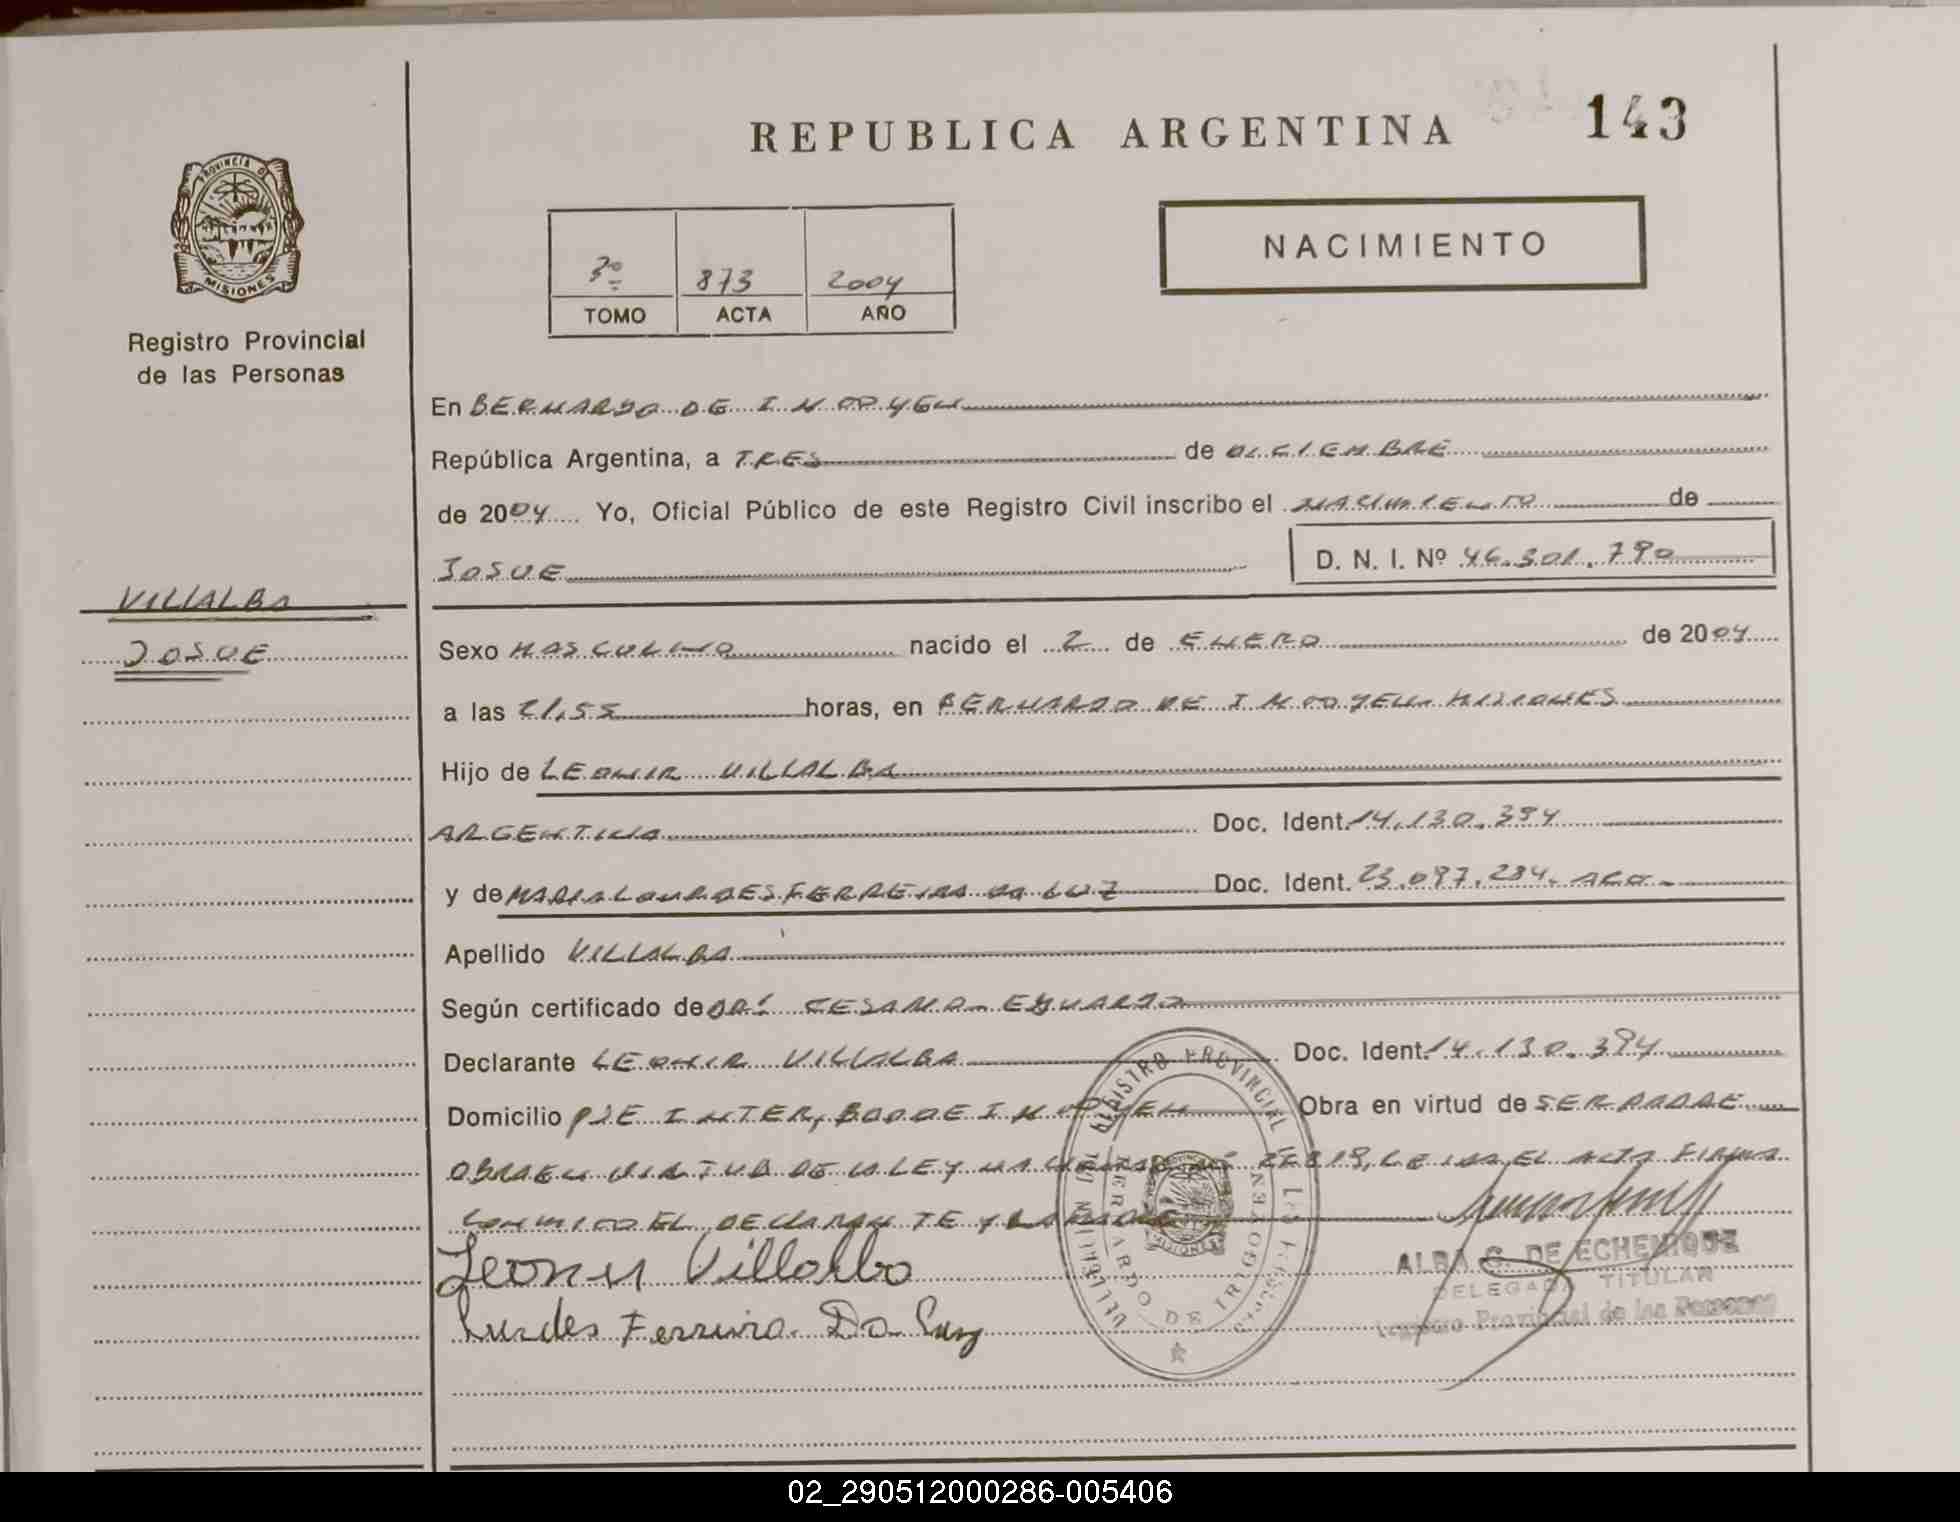 143
REPUBLICA ARGENTINA
NACIMIENTO
PROVINCIA DE
MISIONES
Registro Provincial
de las Personas
3º 873 2004
TOMO ACTA AÑO
En BERNARDO DE IRIGOYEN
República Argentina, a TRES de DICIEMBRE
de 2004 Yo, Oficial Público de este Registro Civil inscribo el NACIMIENTO de
JOSUE D. N. I. Nº 46.301.790
VILLALBA
JOSUE
Sexo MASCULINO nacido el 2 de ENERO de 2004
a las 21,55 horas, en BERNARDO DE IRIGOYEN MISIONES
Hijo de LEONIR VILLALBA
ARGENTINA Doc. Ident. 14.130.394
y de MARIA LOURDES FERREIRA DA LUZ Doc. Ident. 23.097.284
Apellido VILLALBA
Según certificado de DR. EDUARDO
Declarante LEONIR VILLALBA Doc. Ident. 14.130.394
Domicilio PJE INTER, BDO DE IRIGOYEN Obra en virtud de SER PADRE
OBRA EN VIRTUD DE LA LEY LEIDA EL ACTA FIRMA
CONMIGO EL DECLARANTE Y LA MADRE
Leonir Villalba
Lurdes Ferreira Da Luz
REGISTRO PROVINCIAL DE LAS
BERNARDO DE IRIGOYEN
MISIONES
ALBA G. DE ECHENIQUE
DELEGADA TITULAR
Registro Provincial de las Personas
02_290512000286-005406